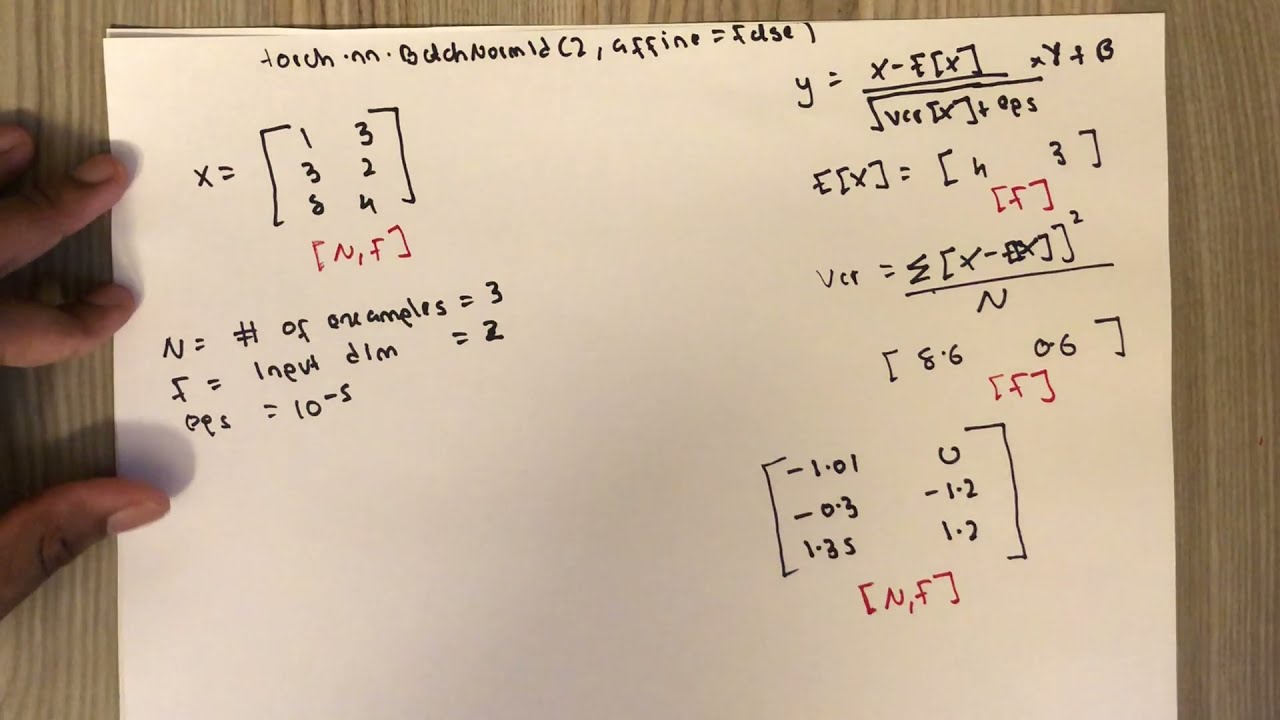 torch.nn.BatchNorm1d(2, affine=false)
x = [ 1 3
3 2
8 4 ]
[N,F]
N = # of examples = 3
F = input dim = 2
eps = 10^-5
y = x-E[x] / √var[x]+eps *γ+β
E[x] = [ 4 3 ]
[F]
var = Σ[x-E[x]]² / N
[ 8.6 0.6 ]
[F]
[ -1.01 0
-0.3 -1.2
1.35 1.2 ]
[N,F]